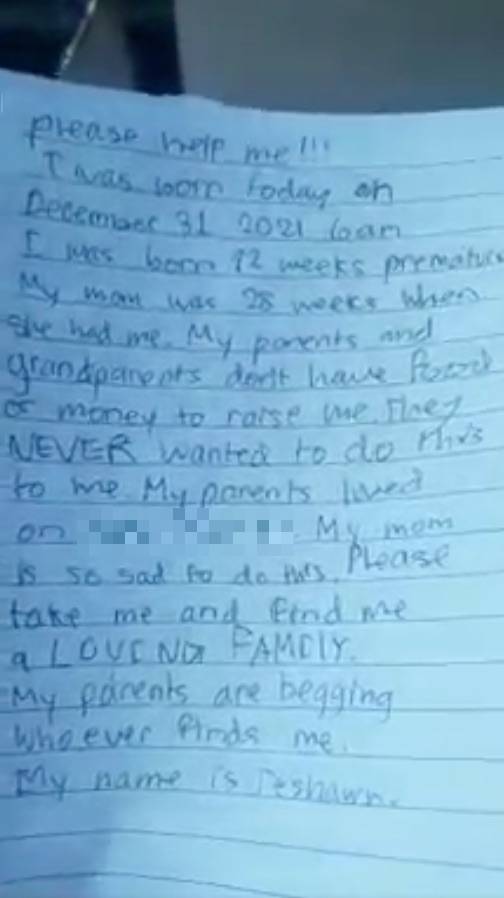 please help me!!!
I was born today on
December 31 2021 6am
I was born 12 weeks premature
My mom was 28 weeks when
She had me. My parents and
grandparents dont have food
or money to raise me. They
NEVER wanted to do this
to me My parents lived
on . My mom
is so sad to do this. Please
take me and find me
a LOVING FAMILY.
My parents are begging
whoever finds me.
My name is Teshawn.